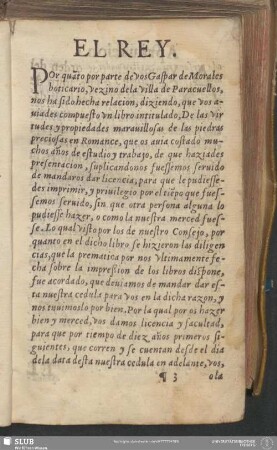 EL REY.
POr quãto por parte de vos Gaspar de Morales
boticario, vezino dela villa de Paracuellos,
nos ha sido hecha relacion, diziendo, que vos a-
uiades compuesto vn libro intitulado, De las vir
tudes y propiedades marauillosas de las piedras
preciosas en Romance, que os auia costado mu-
chos años de estudio y trabajo, de que haziades
presentacion, suplicandonos fuessemos seruido
de mandaros dar licencia, para que le pudiesse-
des imprimir, y priuilegio por el tiẽpo que fues-
semos seruido, sin que otra persona alguna lo
pudiesse hazer, o como la nuestra merced fues-
se. Lo qual visto por los de nuestro Consejo, por
quanto en el dicho libro se hizieron las diligen
cias, que la prematica por nos vltimamente fe-
cha sobre la impression de los libros dispone,
fue acordado, que deuiamos de mandar dar es-
ta nuestra cedula para vos en la dicha razon, y
nos tuuimoslo por bien. Por la qual por os hazer
bien y merced, vos damos licencia y facultad,
para que por tiempo de diez años primeros si-
guientes, que corren y se cuentan desde el dia
dela data desta nuestra cedula en adelante, vos,
¶ 3 o la
SLUB
Wir führen Wissen.